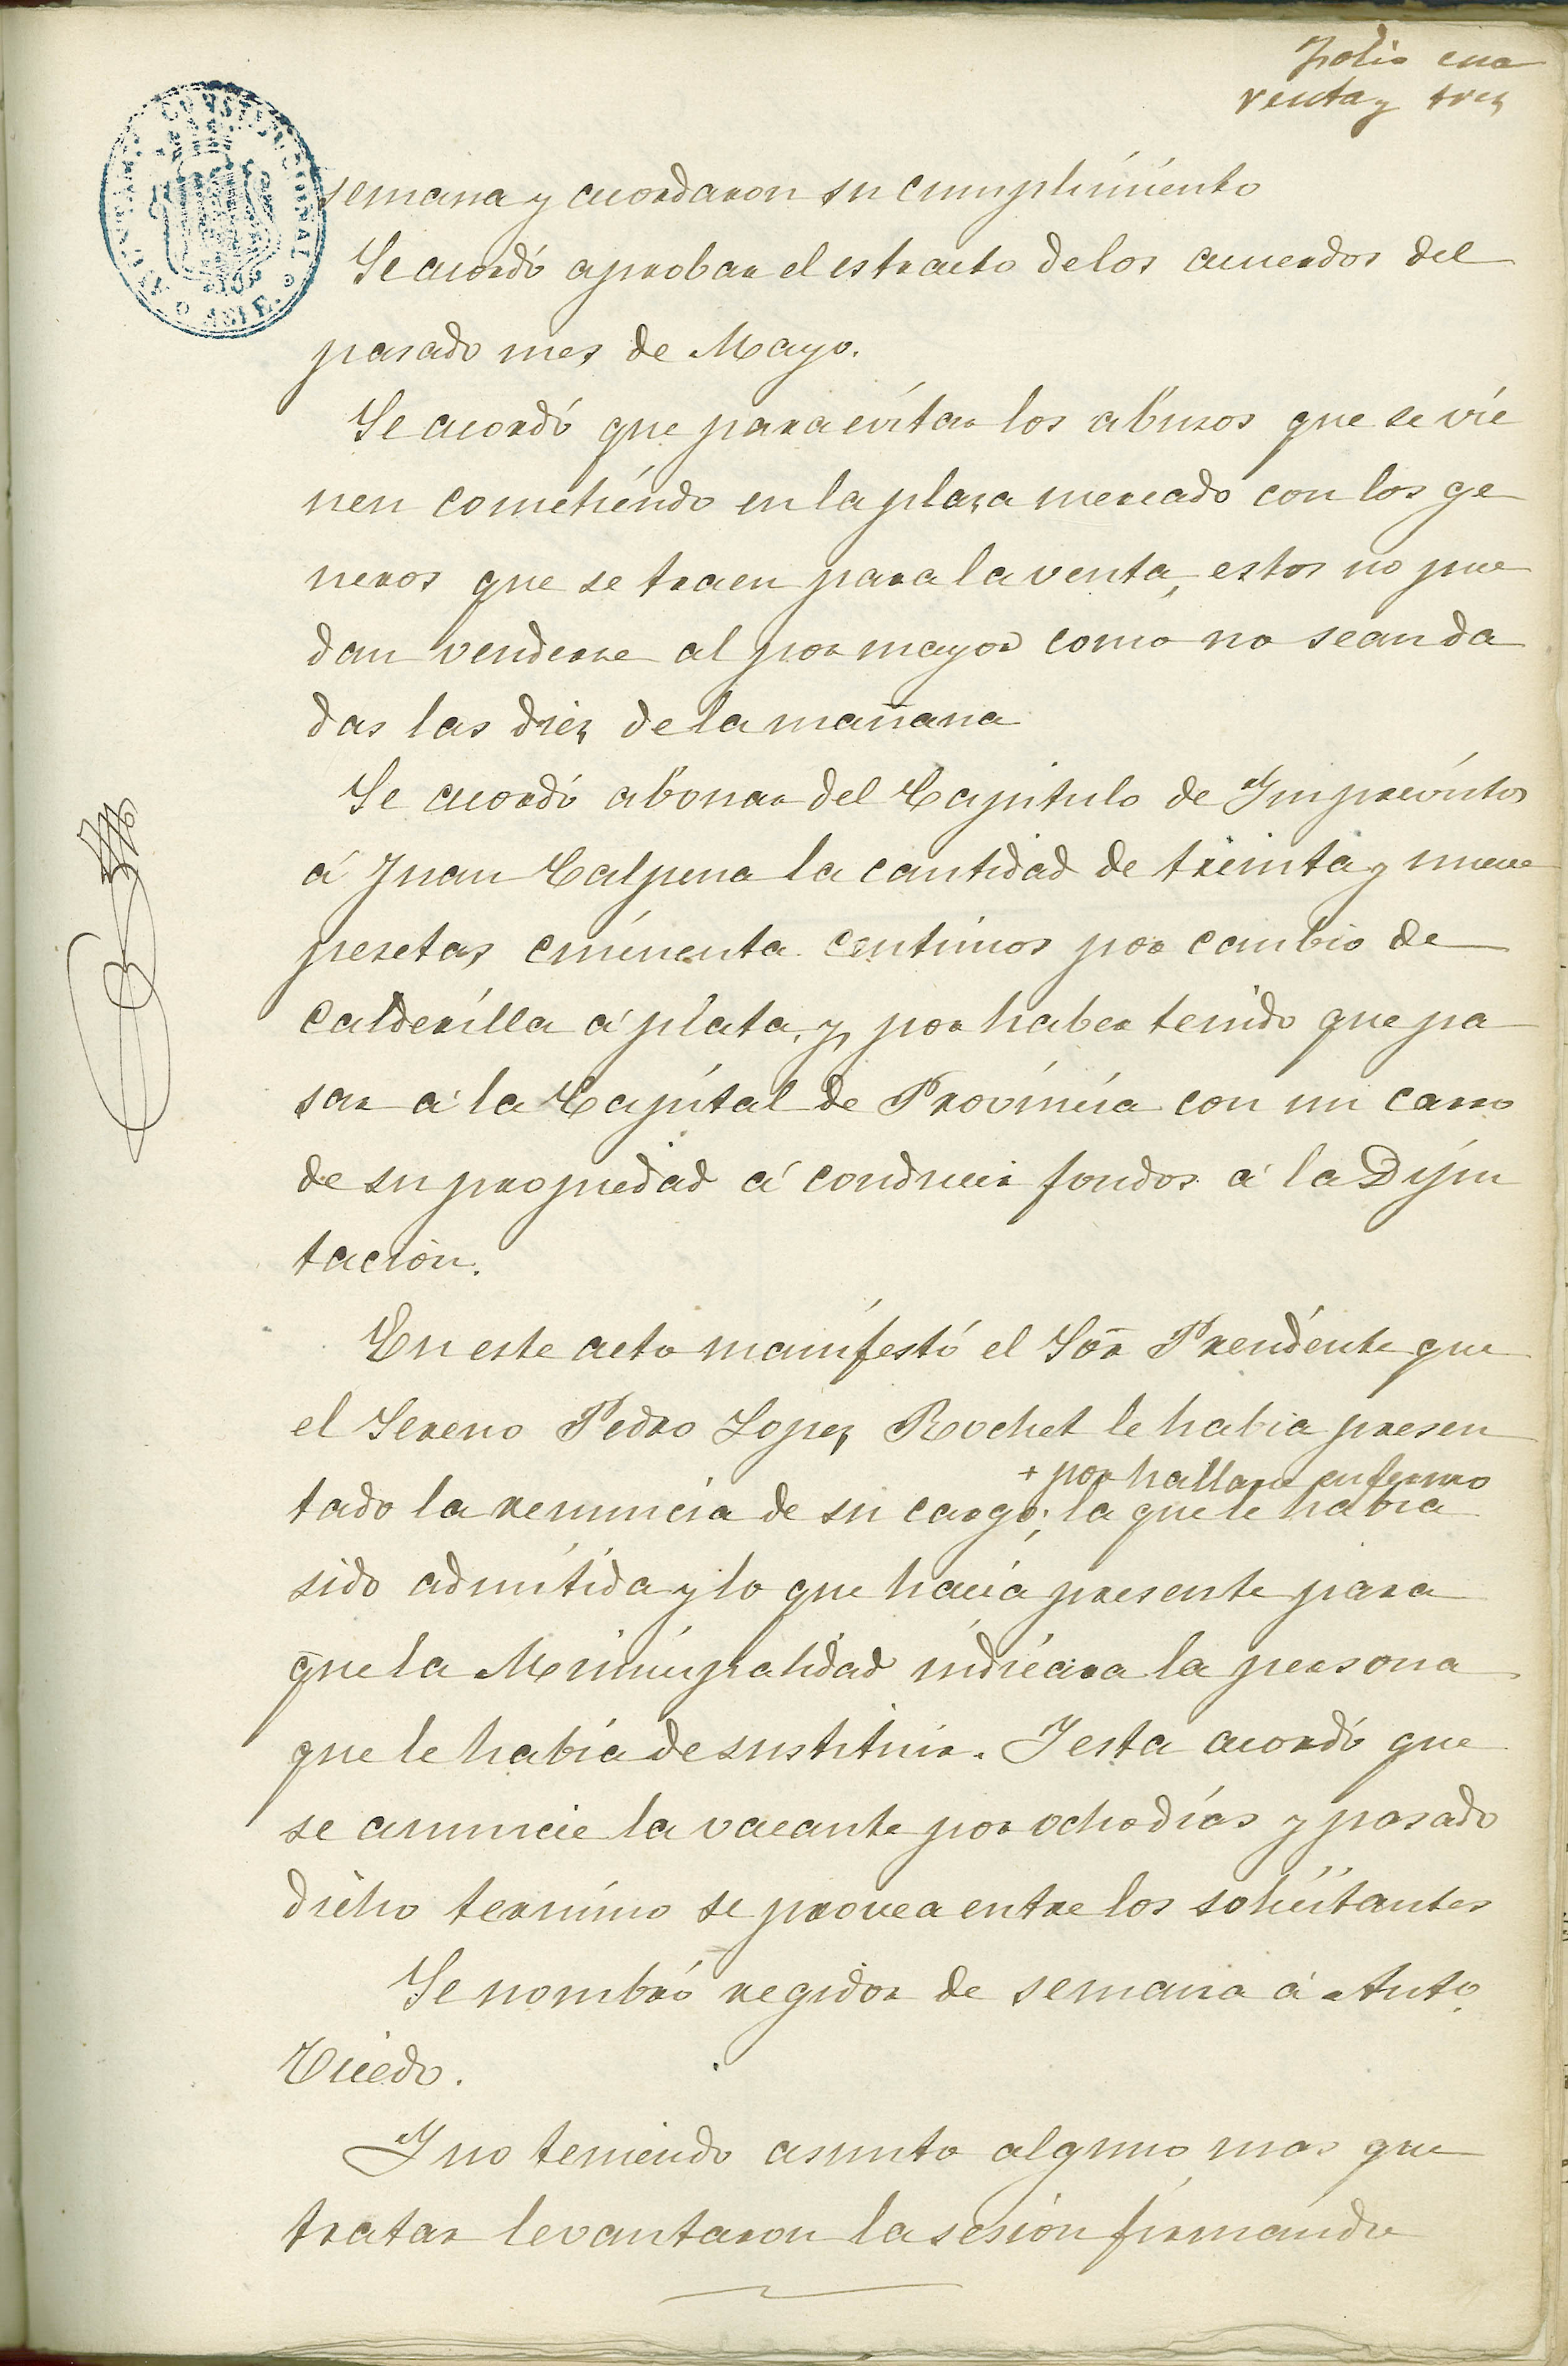 Folio cua
renta y tres
semana y acordaron su cumplimiento
Se acordó aprobar el estracto de los acuerdos del
pasado mes de Mayo.
Se acordó que para evitar los abusos que se vie
nen cometiendo en la plaza mercado con los ge
neros que se traen para la venta, estos no pue
dan venderse al por mayor como no sean da
das las diez de la mañana
Se acordó abonar del Capitulo de Imprevistos
á Juan Calpena la cantidad de treinta y nueve
pesetas cincuenta centimos por cambio de
calderilla á plata, y por haber tenido que pa
sar á la Capital de Provincia con un carro
de su propiedad á conducir fondos á la Dipu
tación.
En este acto manifestó el Sor Presidente que
el Sereno Pedro Lopez Rochet le habia presen
+ por hallarse enfermo
tado la renuncia de su cargo; la que le habia
sido admitida y lo que hacia presente para
que la Municipalidad indicara la persona
que le habia de sustituir. Y esta acordó que
se anuncie la vacante por ocho dias y pasado
dicho termino se provea entre los solicitantes
Se nombró regidor de semana á Anto.
Cicedo.
Y no teniendo asunto alguno mas que
tratar levantaron la sesion firmando